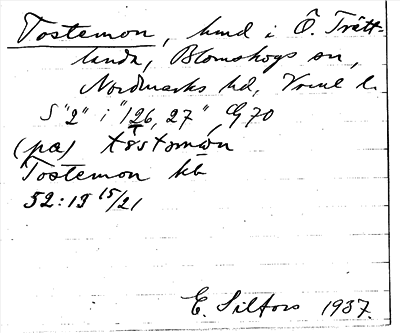 Tostemon, hmd i Ö. Trätt-
landa, Blomskogs sn,
Nordmarks hd, Vrml l.
S "2" i "126, 27", G 70
(på) tåstəmon
Tostemon kb
52:19 15/21
E. Silfors 1937.